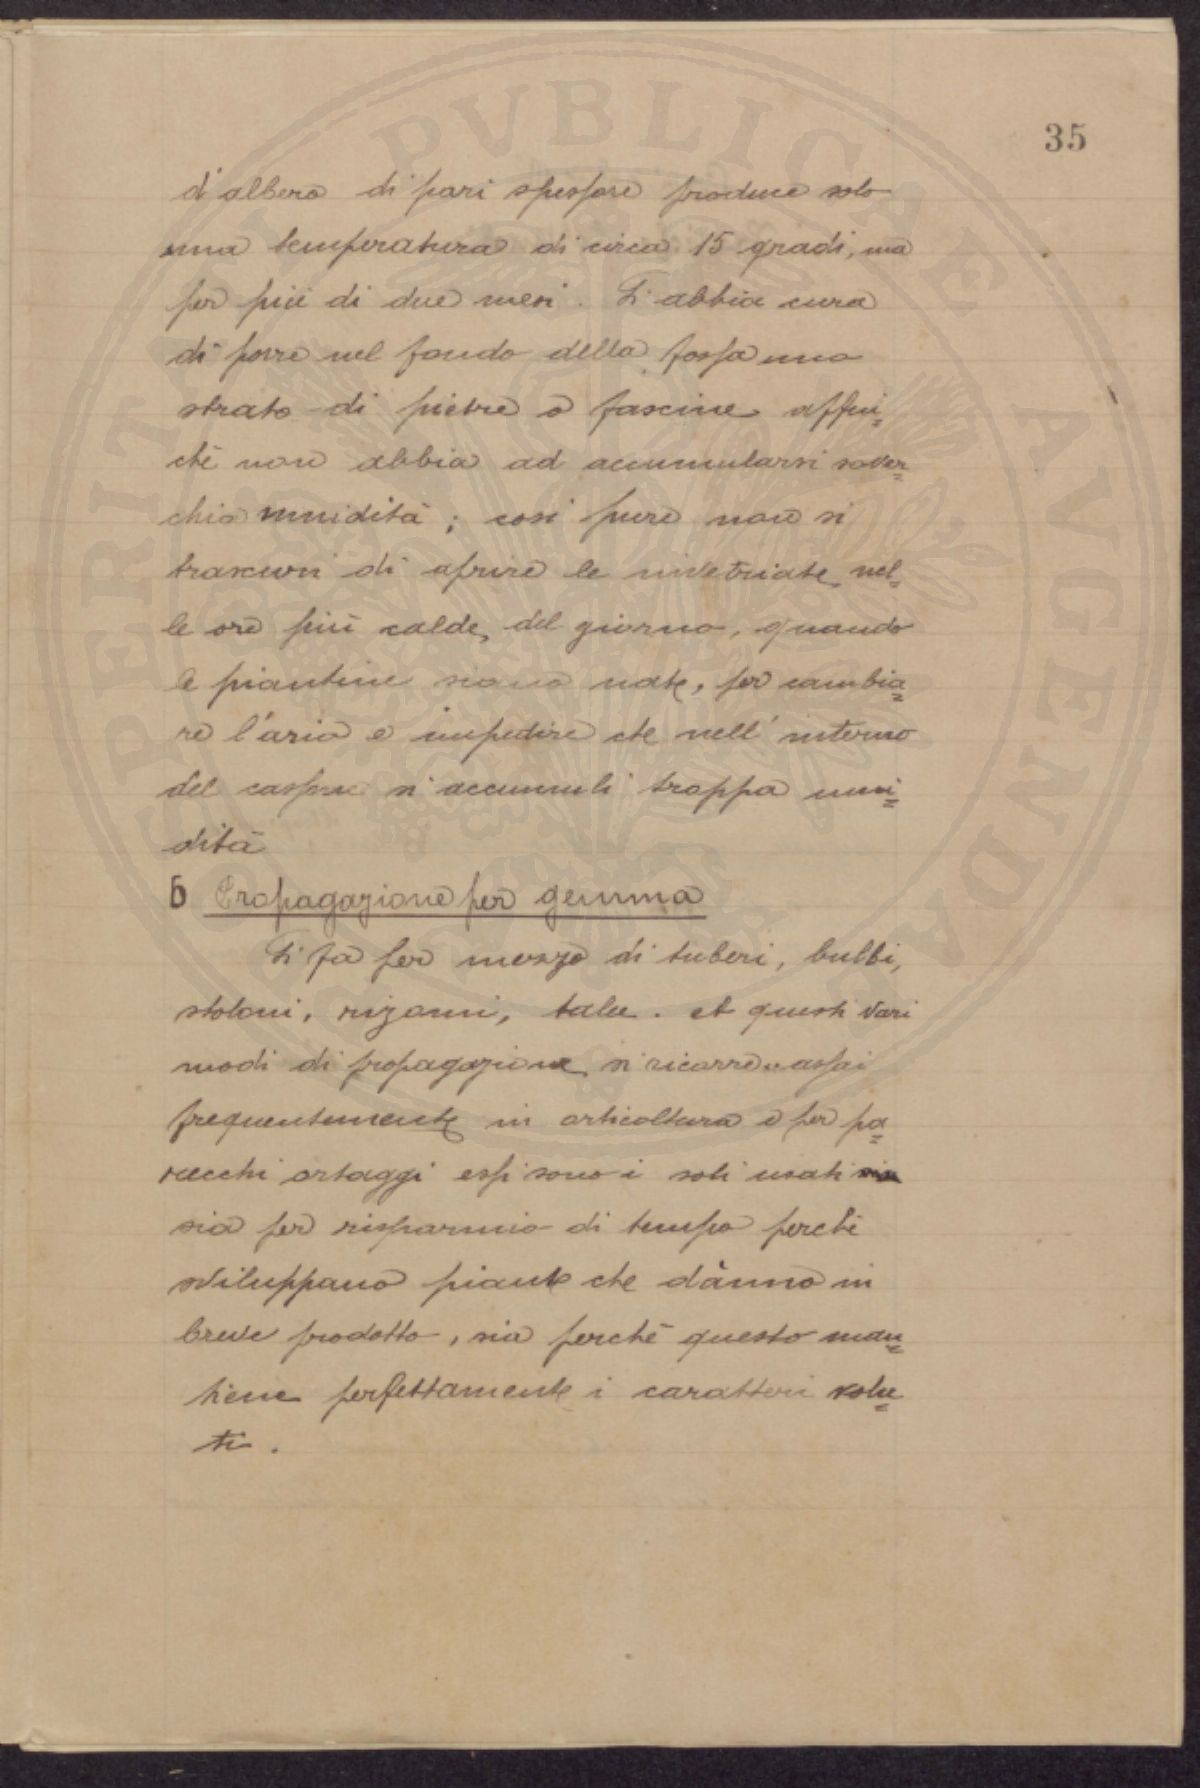 35
d'albero di pari spessore produce solo
una temperatura di circa 15 gradi, ma
per più di due mesi. Si abbia cura
di porre nel fondo della fossa uno
strato di pietre o fascine affin=
chè non abbia ad accumularsi sover=
chia umidità; così pure non si
trascuri di aprire le invetriate nel=
le ore più calde del giorno, quando
le piantine siano nate, per cambia=
re l'aria e impedire che nell'interno
del cassone si accumuli troppa umi=
dità
b Propagazione per gemma
Si fa per mezzo di tuberi, bulbi,
stoloni, rizomi, talee. A questi vari
modi di propagazione si ricorre assai
frequentemente in orticoltura e per pa=
recchi ortaggi essi sono i soli usati
sia per risparmio di tempo perchè
sviluppano piante che dànno in
breve prodotto, sia perchè questo man=
tiene perfettamente i caratteri volu=
ti.
PROSPERITATI PVBLICAE AVGENDAE